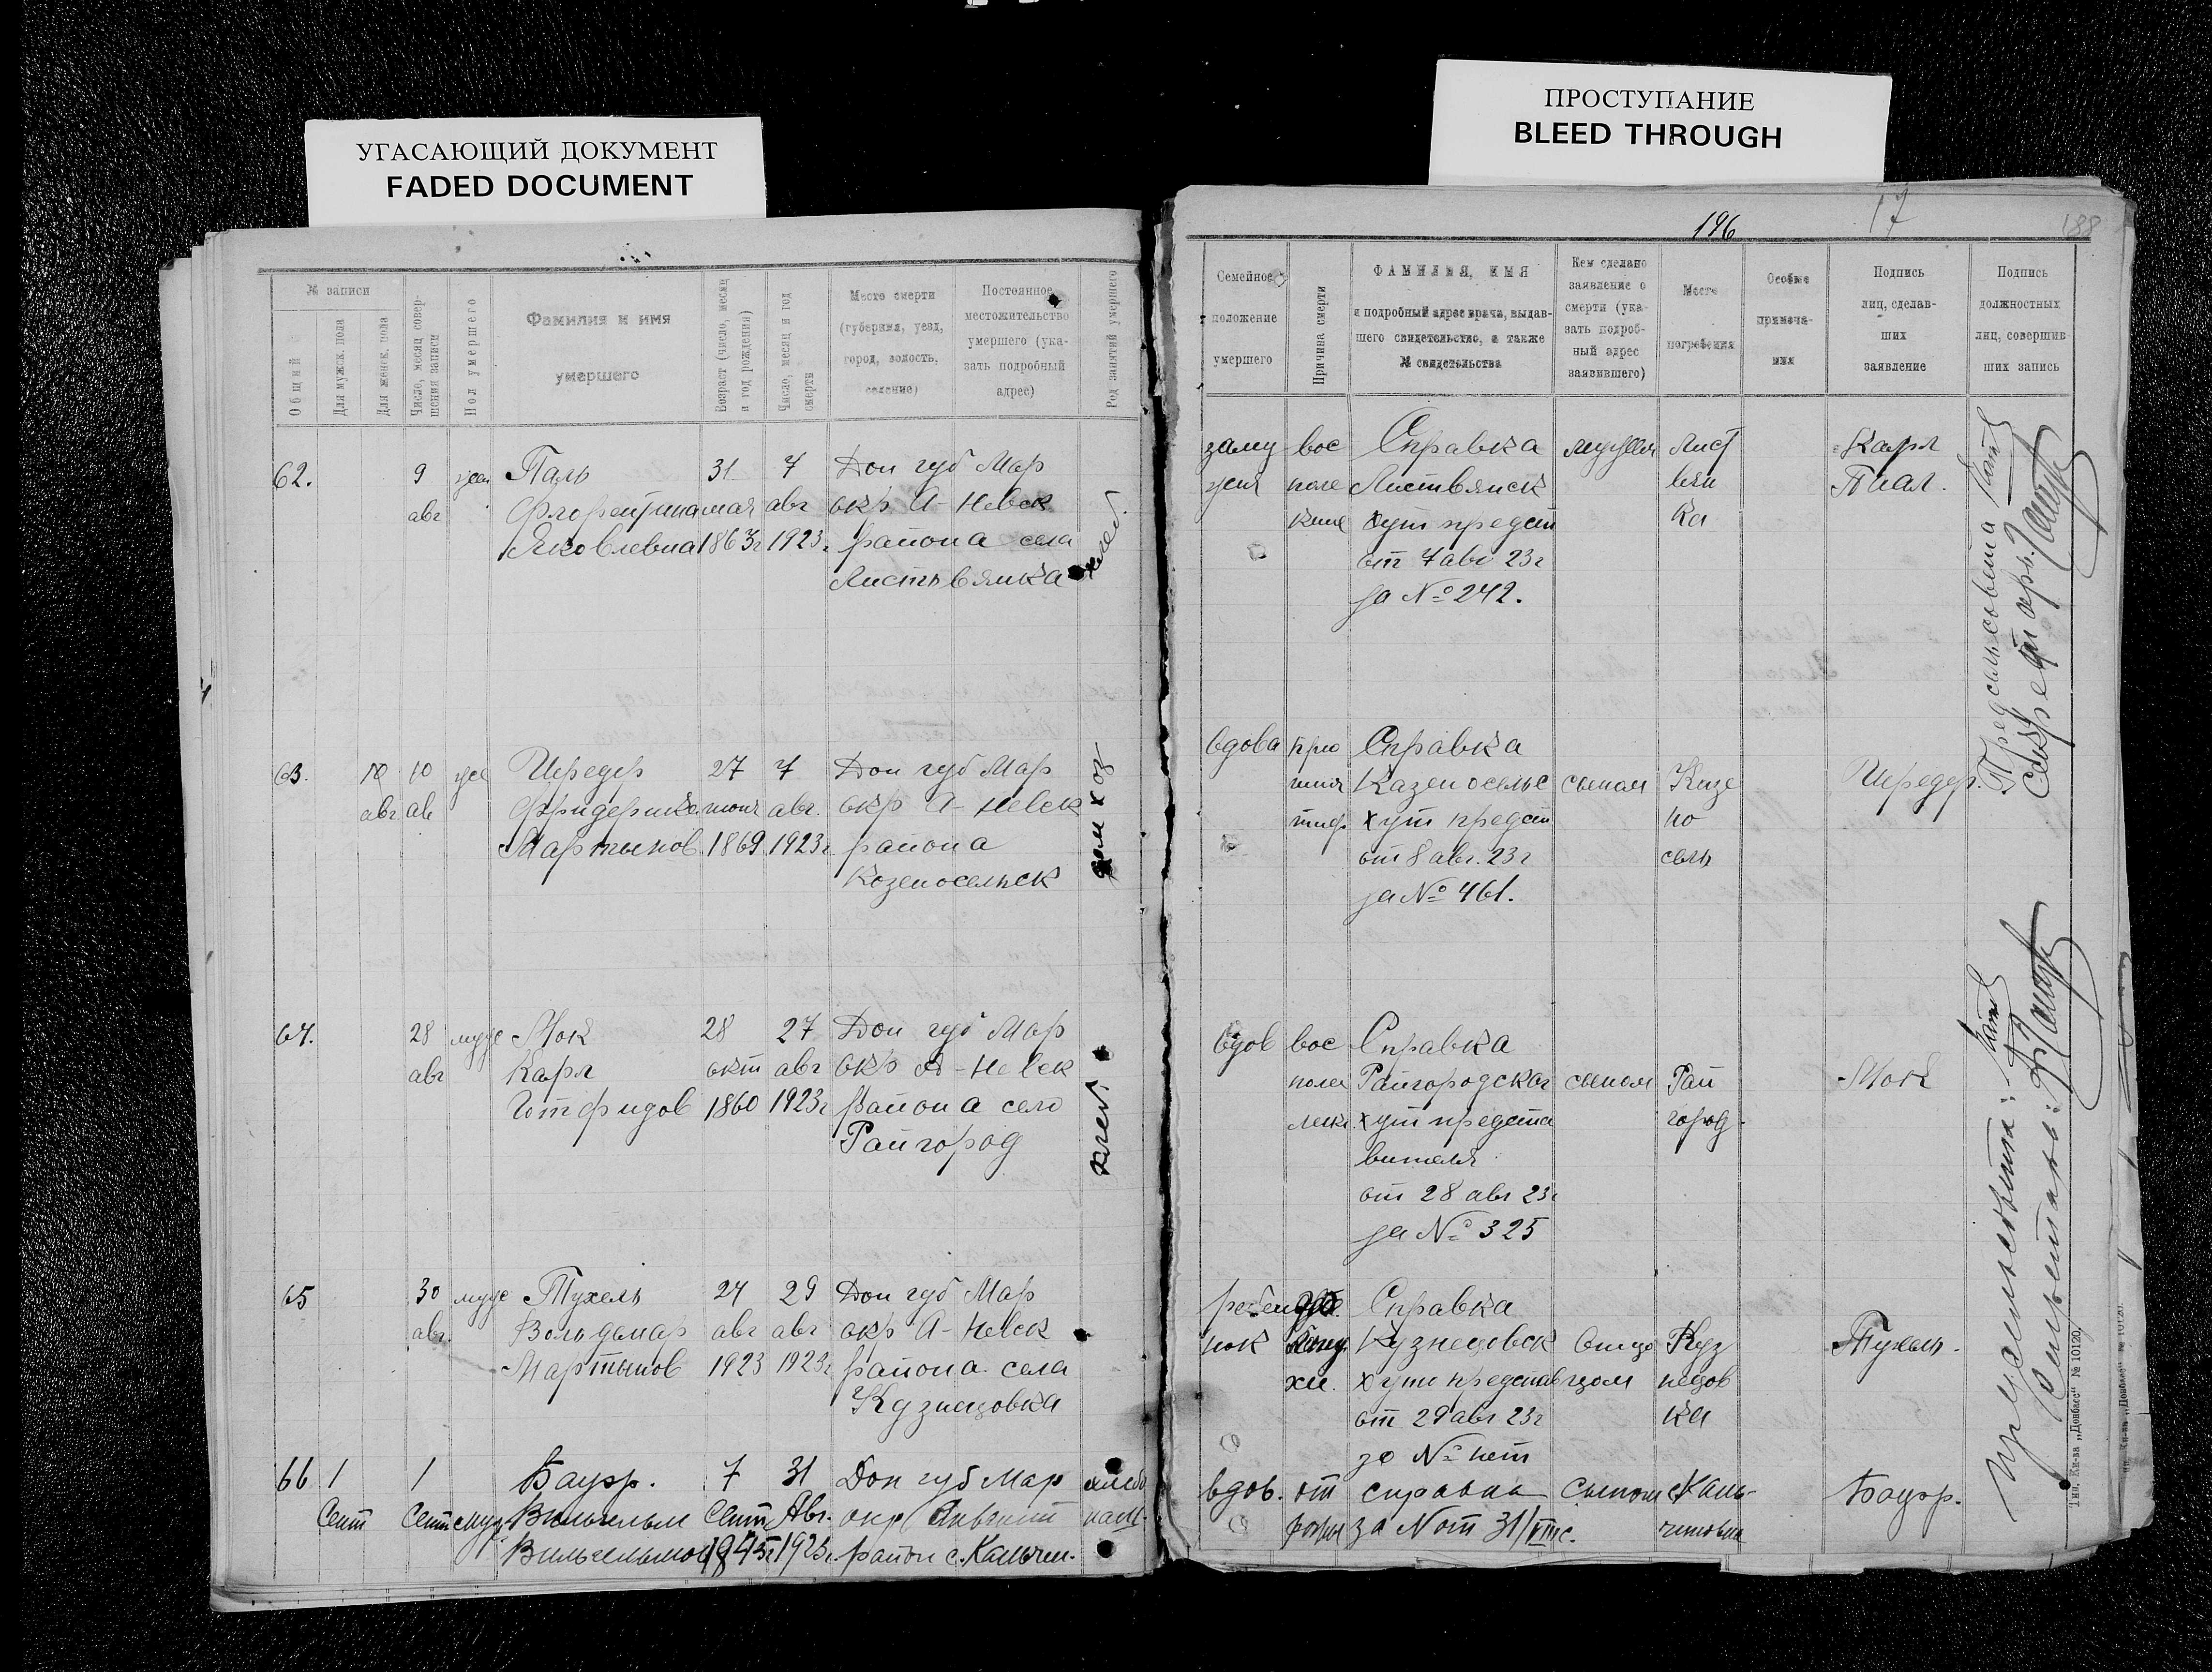 УГАСАЮЩИЙ ДОКУМЕНТ
FADED DOCUMENT
№ записи
Общий
Для мужск. пола
Для женск. пола
Число, месяц совер-
шения записи
Пол умершего
Фамилия и имя
умершего
Возраст (число, месяц
и год рождения)
Число, месяц и год
смерти
Место смерти
(губерния, уезд,
город, волость,
селение)
Постоянное
местожительство
умершего (ука-
зать подробный
адрес)
Род занятий умершего
62. 9 жен Паль 31 7 Дон губ Мар
авг мая авг окр А-Невск
Яковлевна 1863г 1923г района села
Листвянка
63. 10 10 же Шредер 27 7 Дон губ Мар
авг ав Фридерика июня авг. окр А-Невск
Мартынов 1869 1923г района
Козеносельск
дом хоз
64. 28 муж Мок 28 27 Дон губ Мар
авг Карл окт авг окр А-Невск
Готфидов 1860 1923г района село
Райгород
хлеб.
65 30 муж Тухель 24 29 Дон губ Мар
авг. Вольдемар авг авг окр А-Невск
Мартынов 1923 1923г района села
Кузнецовка
66 1 1 Бауэр. 7 31 Дон губ Мар
Сент Сент муж. Вильгельм Сент Авг. окр
Вильгельмов 1923г. район с. Кальчин.
ПРОСТУПАНИЕ
BLEED THROUGH
196
17
188
Семейное
положение
умершего
Причина смерти
ФАМИЛИЯ, ИМЯ
и подробный адрес врача, выдав-
шего свидетельство, а также
№ свидетельства
Кем сделано
заявление о
смерти (ука-
зать подроб-
ный адрес
заявившего)
Место
погребения
Особые
примеча-
ния
Подпись
лиц, сделав-
ших
заявление
Подпись
должностных
лиц, совершив
ших запись
заму вос Справка мужем Лист Карл
жня поле Листвянск вян Пал.
ние хут предст ка
от 7 авг 23г
за № 242.
вдова Справка
Казеносельс сыном Казе Шредер.
тиф хут предст но
от 8 авг. 23г сель
за № 461.
вдов вос Справка
полен Райгородског сыном Рай Мок
легк. хут предста город.
вителя
от 28 авг 23г
за № 325
ребе Справка
нок Кузнецовск отцо Куз Тухель.
хут представ цом нецов
от 29 авг 23г ка
за № нет
вдов. от справка сыном Каль- Бауэр.
за № от 31/VIII с. чиновка
Предсельсовета
Секретарь:
Предсельсовета:
Секретарь:
Тип. Кн-ва „Донбасс“ № 10120.